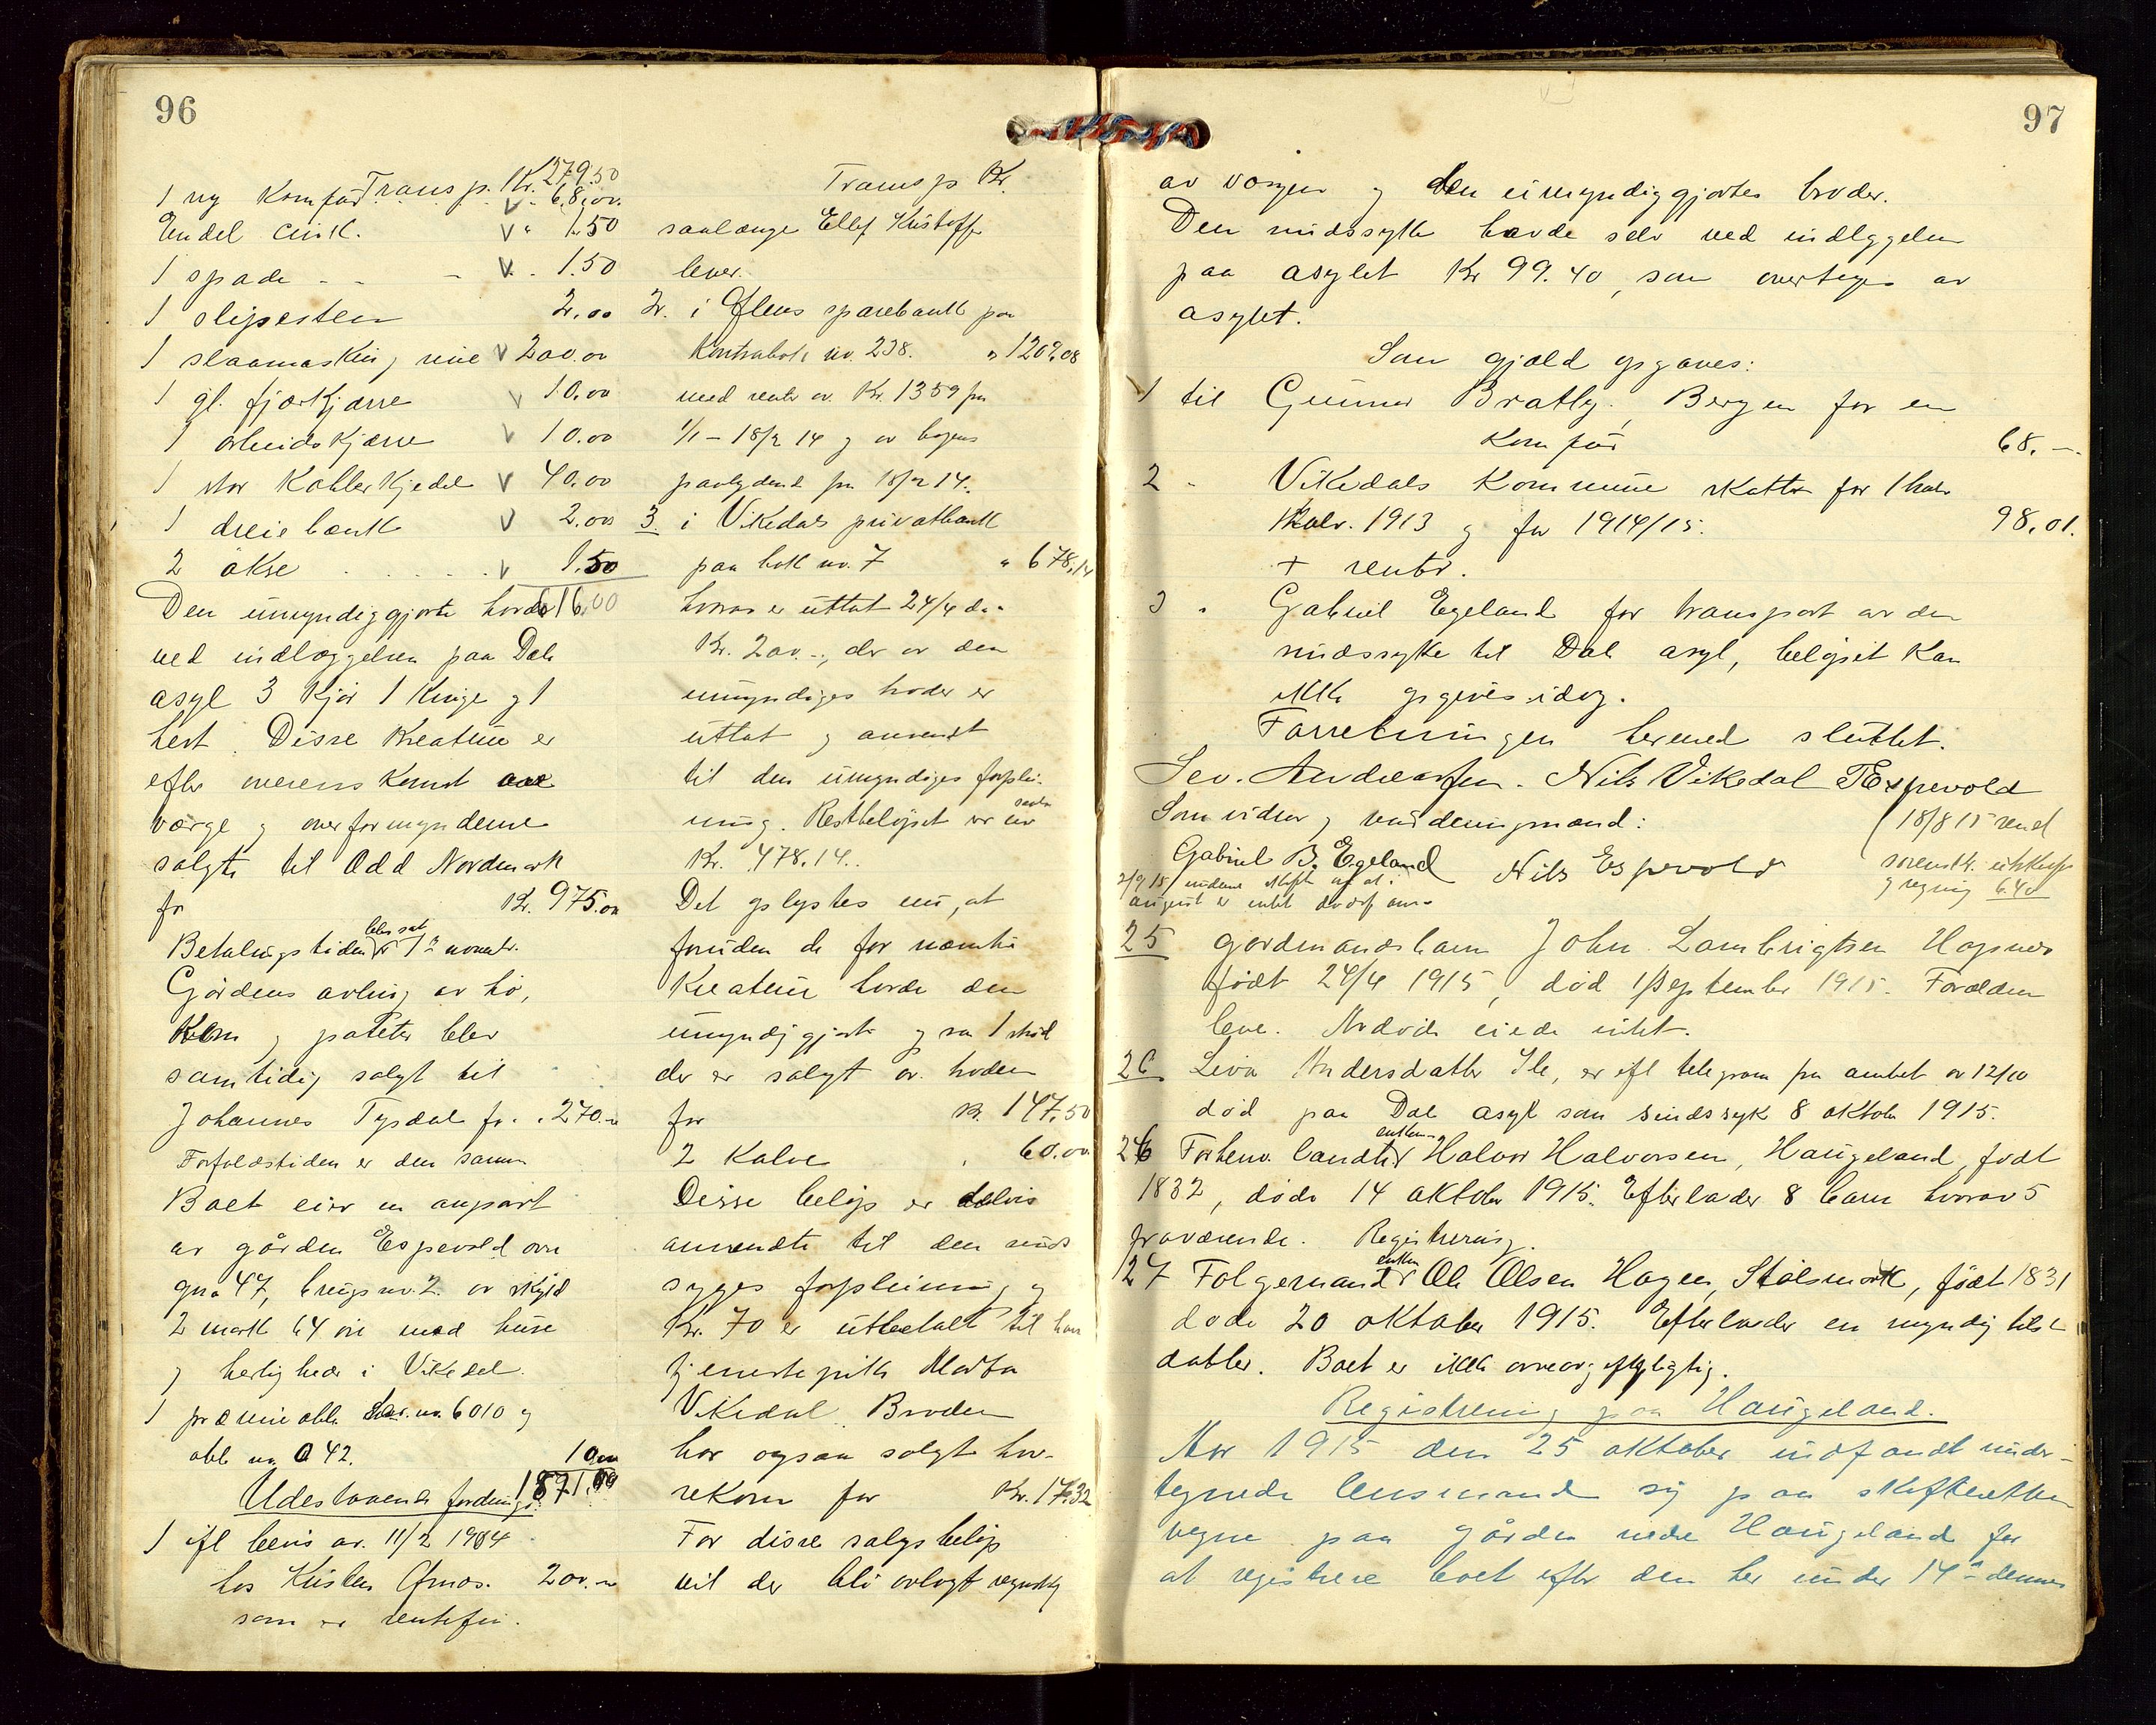 96
Transp. Kr. 279.50
1 ny Komfür v - 68,00.
Endel cink. v " 1.50
1 spade - - - v. . 1.50
1 slipesten 2.00
1 slaamaskin, nie v 200.00
1 gl. fjærkjærre v 10.00
1 arbeidskjærre v 10.00
1 stor Kobberkjedel v 40.00
1 dreiebænk v 2.00
2 økse . . . . . . v 1.50
Den ümyndiggjorte havde 616.00
ved indlæggelsen paa Dale
asyl 3 Kjör 1 Kvige og 1
hest. Disse Kreatüre er
efter overenskomst av
værge og overformynderne
solgte til Odd Nordmark
for Kr. 975.00
Betalingstiden blev sat
Gårdens avling av hö,
Korn og poteter blev
samtidig solgt til
Johannes Tysdal for . 270.-
Forfaldstiden er den samme
Boet eier en anpart
av gården Espevold øvre
gno 47, brugsnr. 2. av skyld
2 mark 64 øre med huse
og herligheder i Vikedal.
1 præmieobl. Ser. no. 6010 og
obl no 042. 10.00
1871.00
Udestaaende fordringer.
1 ifl bevis av. 11/2 1904
hos Kristen Omos. 200.-
som er rentefri.
Transp Kr.
saalænge Ellef Kristoffer
lever.
2. i Ølens sparebank paa
Kontrabok nr. 238. " 1209.08
med renter av Kr. 1359 fra
1/1 - 18/2 14 og av bogens
paalydende fra 18/2 14.
3. i Vikedals privatbank
paa bok nr. 7 " 678.14
hvorav er üttat 24/4 d.a.
Kr. 200.-, der av den
ümyndiges broder er
üttat og anvendt
til den ümyndiges forplei-
ning. Restbeløpet er nu
Kr. 478.14.
Det oplystes nü, at
foruden de før nævnte
Kreatüre havde den
ümyndiggjorte ogsaa 1 stüd
der er solgt av broderen
for Kr. 147.50
2 Kalve . 60.00
Disse beløp er delvis
anvendte til den sinds
syges forpleining og
Kr. 70 er ütbetalt til hans
tjenestepike Marta
Vikedal. Broderen
har ogsaa solgt hav-
rekorn for Kr. 17.32
For disse salgsbeløp
vil der bli avlagt regnskap
97
av værgen og den ümyndiggjortes broder.
Den sindssyke havde selv ved indlæggelsen
paa asylet Kr 99.40, som overtoges av
asylet.
Som gjæld opgaves:
1 til Günnar Bratly, Bergen for en
Komfür 68.-.
2 - Vikedals Kommüne skatter for 1 halv
Kalv. 1913 og for 1914/15. 98.01.
+ renter.
3 - Gabriel Egeland for transport av den
sindssyke til Dale asyl, beløpet Kan
ikke opgives idag.
Forretningen hermed slüttet.
Sev. Andreassen. Nils Vikedal T Espevold
Som vidner og vurderingsmænd:
Gabriel B. Egeland Nils Espevold
18/8 15 sendt
sorenskr. utskrift
og regning 6.40
2/9 15
august er intet dødsf anm.
25 gardmandsbarn John Lambrigtsen Hapnes
født 24/4 1915, død 1 september 1915. Forældrene
leve. Avdøde eiede intet.
26 Liva Andersdatter Ile, er ifl telegram fra amtet av 12/10
død paa Dale asyl som sindssyk 8 oktober 1915.
26 Forhenv. landhandler enkem. Halvor Halvorsen, Haugeland, født
1832, døde 14 oktober 1915. Efterlader 8 barn hvorav 5
fraværende. Registrering.
27 Folgemand enkem Ole Olsen Hagen, Stølsmark, født 1831
døde 20 oktober 1915. Efterlader en myndig tilst
datter. Boet er ikke arveavgiftspligtig.
Registrering paa Haugeland.
Aar 1915 den 25 oktober indfandt under-
tegnede lensmand sig paa skifterettens
vegne paa gården nedre Haugeland for
at registrere boet efter den her ünder 14de dennes